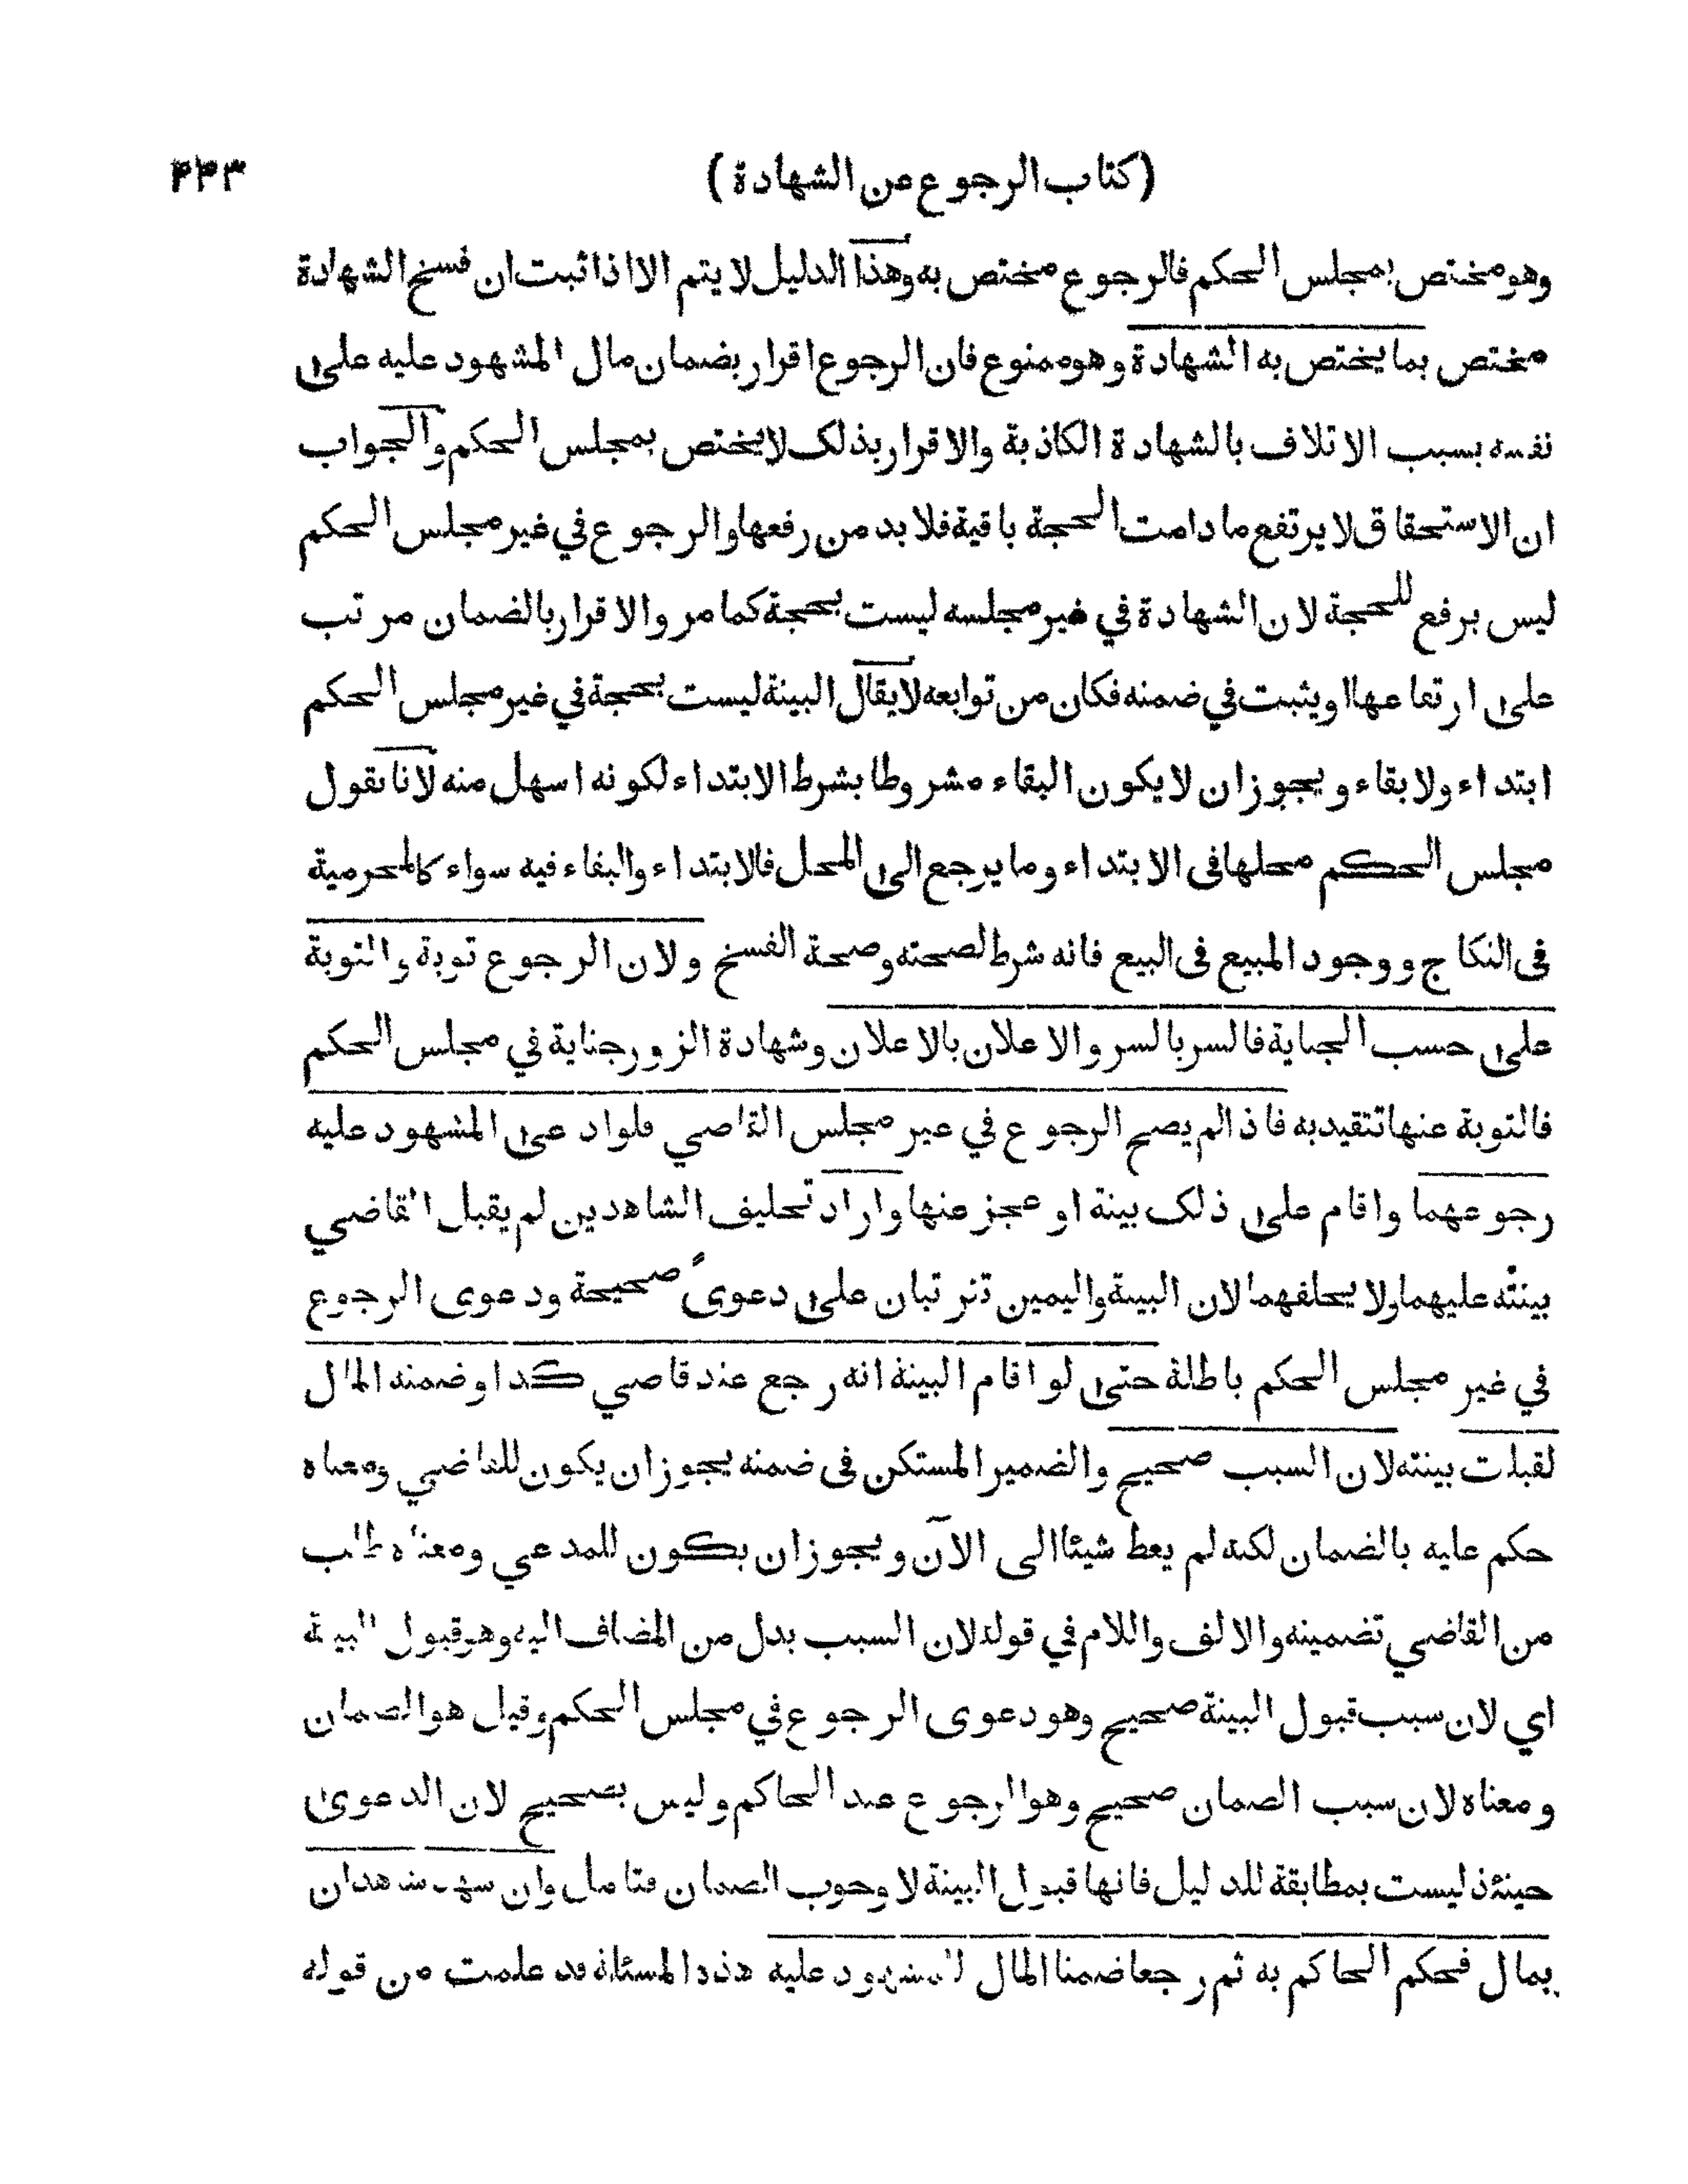 (كتاب الرجوع عن الشهادة) ۴۴۳
وهو مختص بمجلس الحكم فالرجوع مختص به وهذا الدليل لا يتم الا اذا ثبت ان فسخ الشهادة
مختص بما يختص به الشهادة وهو ممنوع فان الرجوع اقرار بضمان مال المشهود عليه على
نفسه بسبب الاتلاف بالشهادة الكاذبة والاقرار بذلك لا يختص بمجلس الحكم والجواب
ان الاستحقاق لا يرتفع ما دامت الحجة باقية فلا بد من رفعها والرجوع في غير مجلس الحكم
ليس برفع للحجة لان الشهادة في غير مجلسه ليست بحجة كما مر والاقرار بالضمان مرتب
على ارتفاعها او يثبت في ضمنه فكان من توابعه لا يقال البينة ليست بحجة في غير مجلس الحكم
ابتداء ولا بقاء ويجوز ان لا يكون البقاء مشروطا بشرط الابتداء لكونه اسهل منه لانا نقول
مجلس الحكم محلها فى الابتداء وما يرجع الى المحل فالابتداء والبقاء فيه سواء كالمحرمية
فى النكاح ووجود المبيع فى البيع فانه شرط لصحته وصحة الفسخ ولان الرجوع توبة والتوبة
على حسب الجناية فالسر بالسر والاعلان بالاعلان وشهادة الزور جناية في مجلس الحكم
فالتوبة عنها تتقيد به فاذا لم يصح الرجوع في غير مجلس القاضي فلو ادعى المشهود عليه
رجوعهما واقام على ذلك بينة او عجز عنها واراد تحليف الشاهدين لم يقبل القاضي
بينته عليهما ولا يحلفهما لان البينة واليمين تترتبان على دعوى صحيحة ودعوى الرجوع
في غير مجلس الحكم باطلة حتى لو اقام البينة انه رجع عند قاضي كذا وضمنه المال
لقبلت بينته لان السبب صحيح والضمير المستكن فى ضمنه يجوز ان يكون للقاضي ومعناه
حكم عليه بالضمان لكنه لم يعط شيئا الى الآن ويجوز ان يكون للمدعي ومعناه طلب
من القاضي تضمينه والالف واللام في قوله لان السبب بدل من المضاف اليه وهو قبول البينة
اي لان سبب قبول البينة صحيح وهو دعوى الرجوع في مجلس الحكم وقيل هو الضمان
ومعناه لان سبب الضمان صحيح وهو الرجوع عند الحاكم وليس بصحيح لان الدعوى
حينئذ ليست بمطابقة للدليل فانها قبول البينة لا وجوب الضمان فتامل وان شهد شاهدان
بمال فحكم الحاكم به ثم رجعا ضمنا المال للمشهود عليه هذه المسئلة قد علمت من قوله